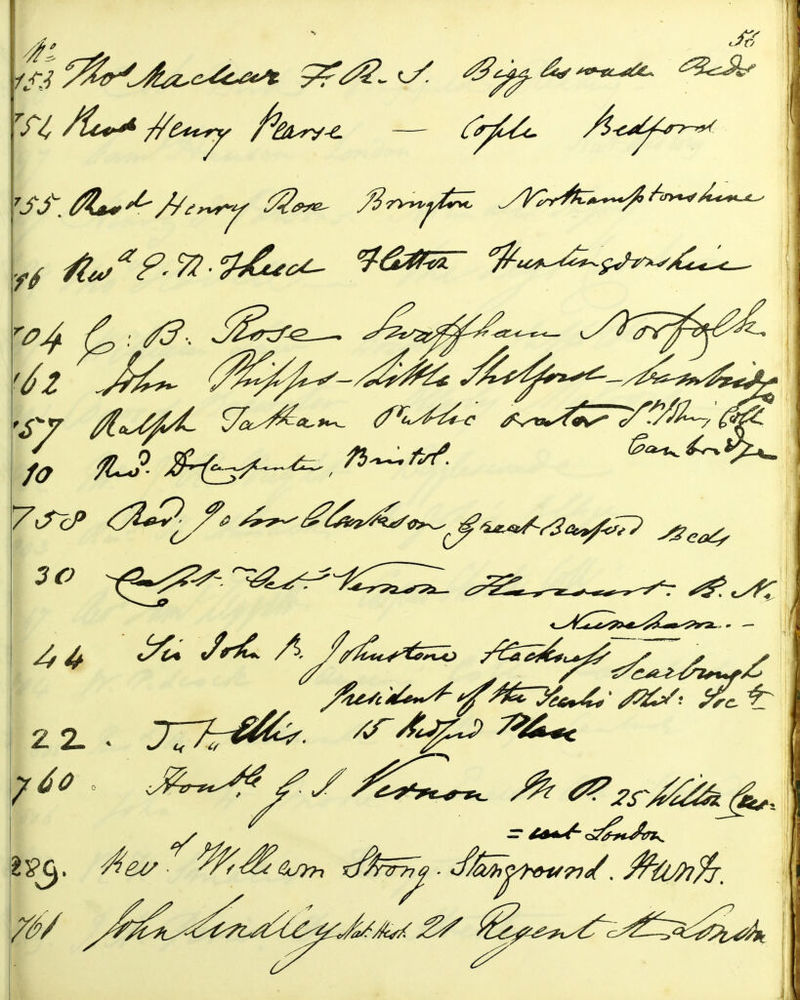 56
No
753 Thos Maclear F. R. S. Biggleswade Beds
754 Revd Henry Pearse — Cople Bedford
755. Revd Henry Rose Brington Northamptonshire
756 Revd E. R. Theed Fletton Huntingdonshire
704 C: B. Rose Swaffham Norfolk.
162 John Phipps - Little Shelford - Cambridge
757 Ralph Tatham Public orator St. John's Coll
Cambridge
10 Revd. Dr Carpenter, Bristol.
758 Revd. John Clarkson Great Barford Beds
30 Capt. Vernon Harcourt. R. N.
Nuneham. -
44 Sir John B. Johnstone Hackness Scarbrough
President of the Scarbro' Phil: Socty
22. Ellis. 15 Bedford Place
760 Honble G. J. Vernon M P. 25 Wilton Cres=
=cent London
289. Revd. William Strong. Stanground. Hunts.
761 John Lindley Nat. Hist. 21 Regent St London